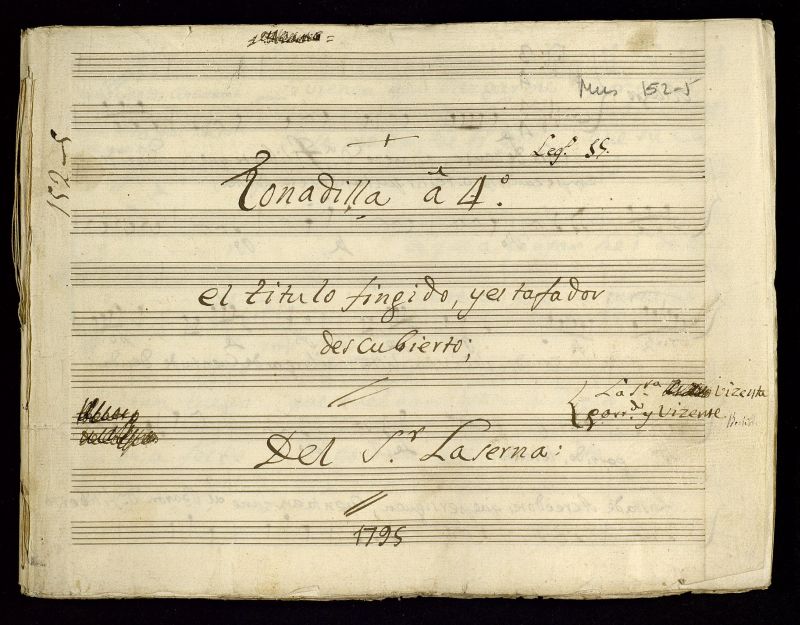 Mus 152-5
152-5
Leg.º 55.
Tonadilla â 4.º
el titulo fingido, y estafador
descubierto;
La S.ra Vizenta
y Vizente
Del S.r Laserna:
1795